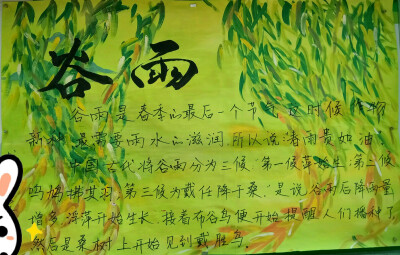 谷雨
谷雨是春季的最后一个节气,这时候作物
新种,最需要雨水的滋润,所以说"春雨贵如油"
中国古代将谷雨分为三候:"第一候萍始生;第二候
鸣鸠拂其羽;第三候为戴任降于桑。"是说谷雨后降雨量
增多,浮萍开始生长,接着布谷鸟便开始提醒人们播种了,
然后是桑树上开始见到戴胜鸟。